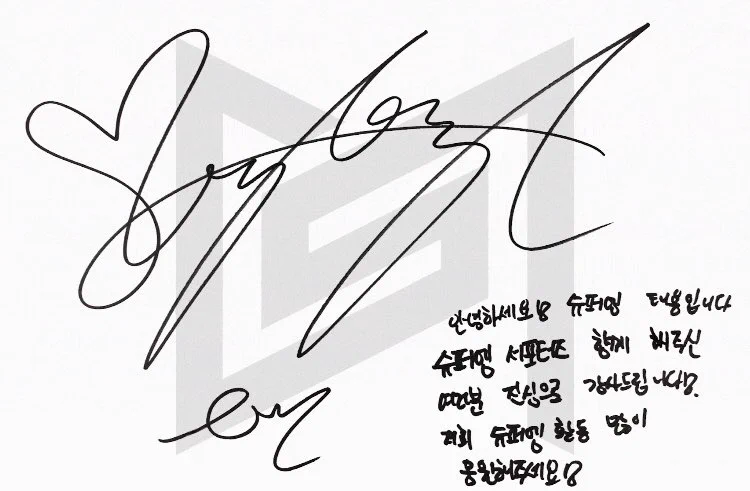 안녕하세요♡ 슈퍼엠 태용입니다
슈퍼엠 서포터즈 함께 해주신
여러분 진심으로 감사드립니다♡.
저희 슈퍼엠 활동 많이
응원해주세요♡